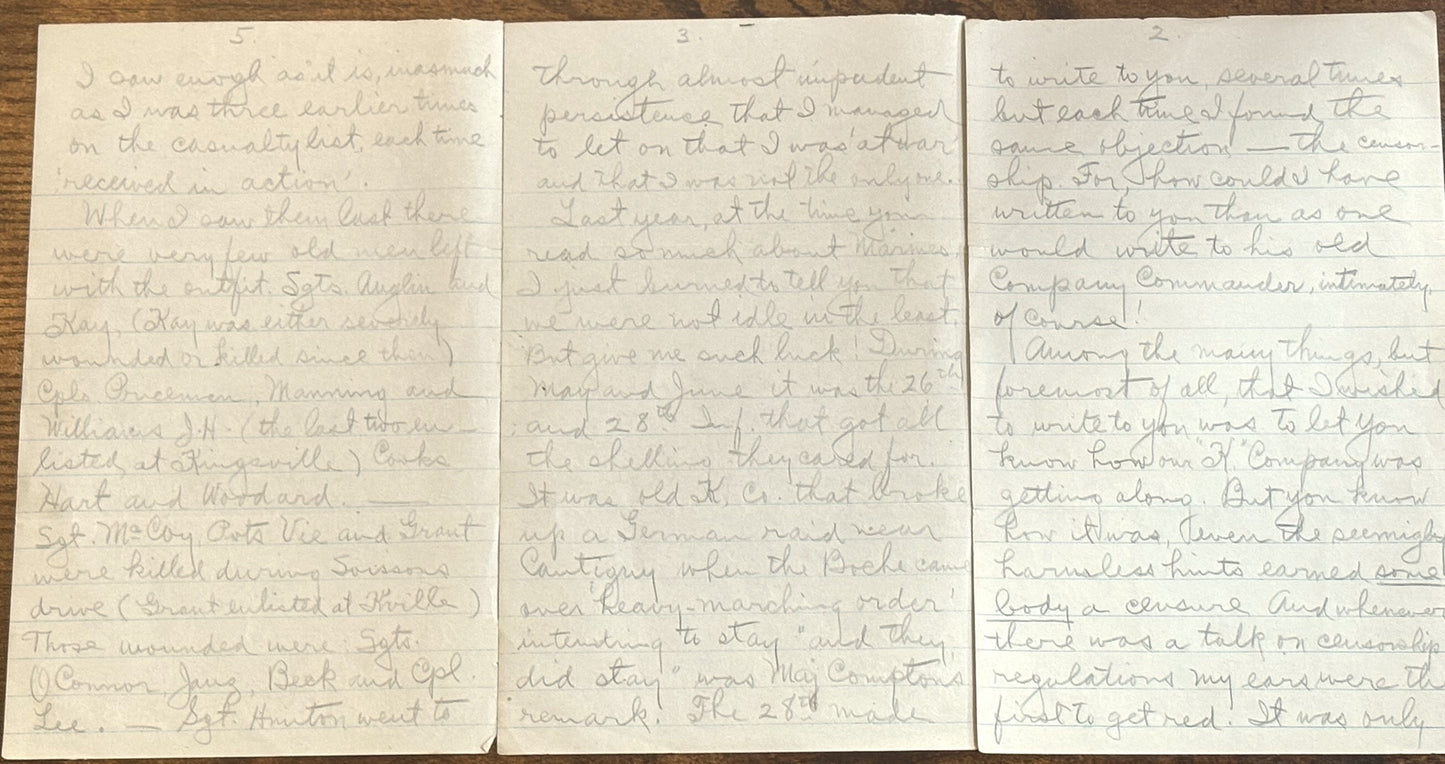 5.
I saw enough as it is, inasmuch
as I was three earlier times
on the casualty list, each time
'received in action'.
When I saw them last there
were very few old men left
with the outfit. Sgts. Anglin and
Kay, (Kay was either severely
wounded or killed since then)
Cpls. Manning and
Williams J.H. (the last two en-
listed at Kingsville) Cooks
Hart and Woodard. —
Sgt. McCoy, Pvts Vie and Grant
were killed during Soissons
drive (Grant enlisted at Kville)
Those wounded were: Sgts.
O'Connor, Beck and Cpl.
Lee. — Sgt. Hunton went to
3.
through almost impudent
persistence that I managed
to let on that I was 'at war'
and that I was not the only one.
Last year, at the time you
read so much about Marines,
I just burned to tell you that
we were not idle in the least.
But give me such luck! During
May and June it was the 26th
and 28th Inf. that got all
the shelling they cared for.
It was old K. Co. that broke
up a German raid near
Cantigny when the Boche came
over 'heavy-marching order'
intending to stay "and they
did stay" was Maj Comptons
remark. The 28th made
2.
to write to you, several times
but each time I found the
same objection — the censor-
ship. For, how could I have
written to you than as one
would write to his old
Company Commander, intimately,
of course!
Among the many things, but
foremost of all, that I wished
to write to you was to let you
know how our "K." Company was
getting along. But you know
how it was, even the seemingly
harmless hints earned some
body a censure And whenever
there was a talk on censorship
regulations my ears were the
first to get red. It was only